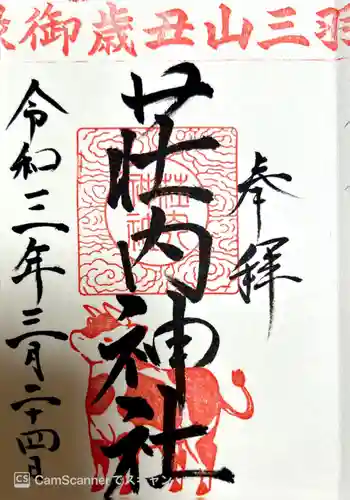 羽三山丑歳御縁
奉拝
荘内神社
令和三年三月二十四日
荘内神社
CS CamScannerでスキャン